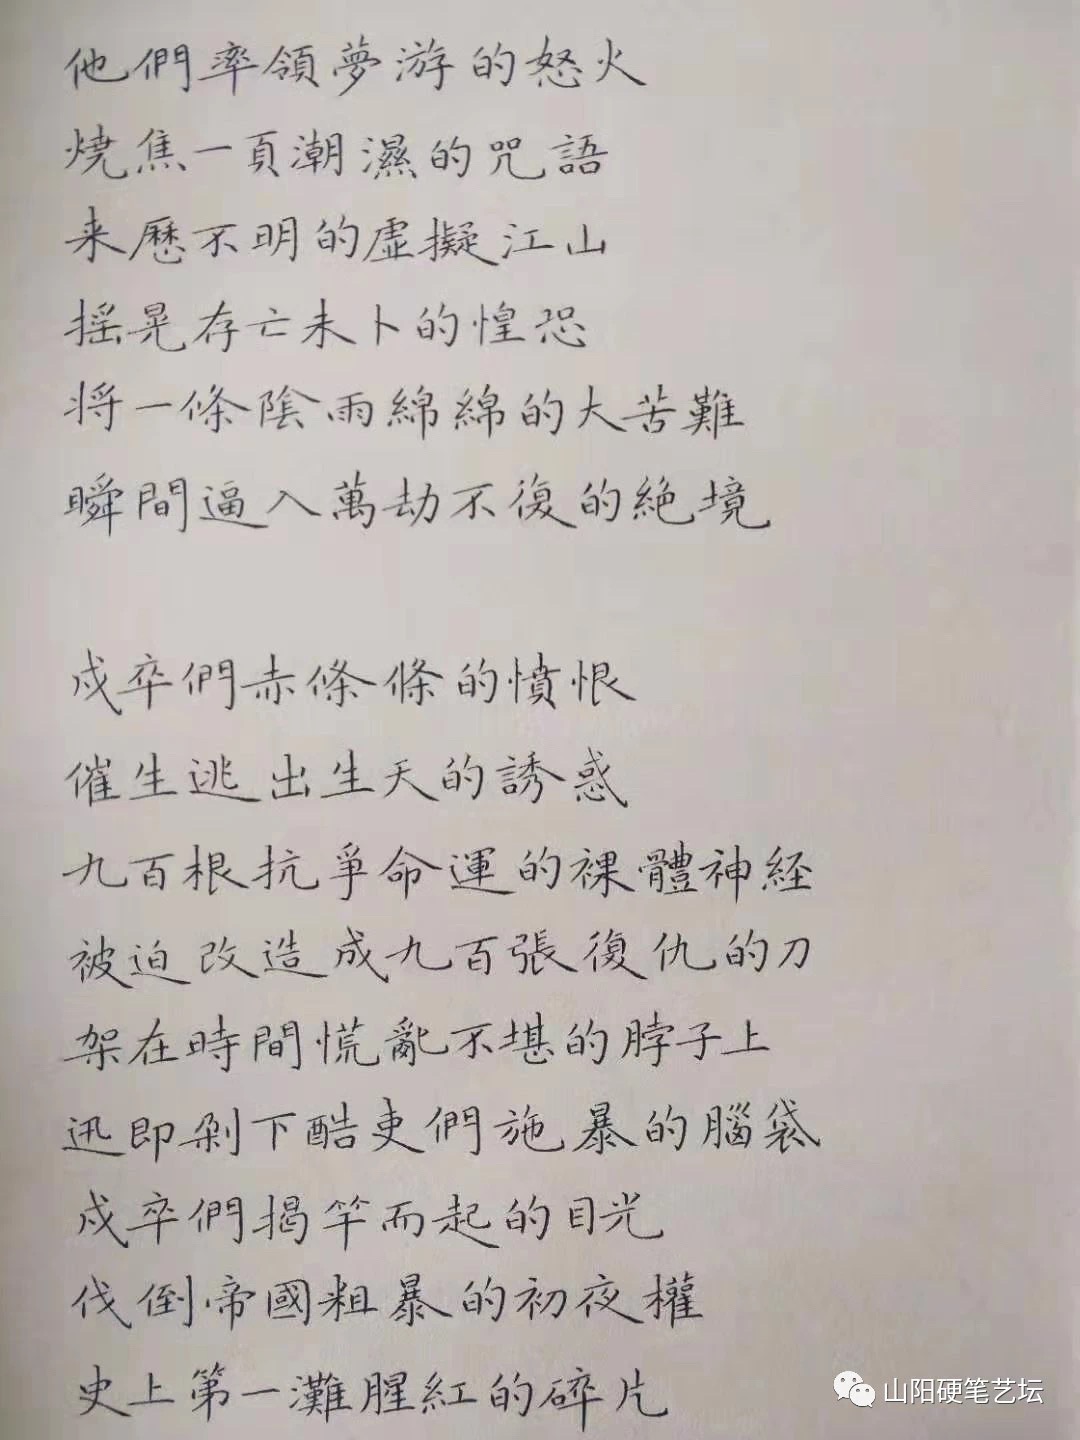 他們率領夢游的怒火
燒焦一頁潮濕的咒語
来歷不明的虛擬江山
摇晃存亡未卜的惶恐
将一條陰雨綿綿的大苦難
瞬間逼入萬劫不復的絕境
戍卒們赤條條的憤恨
催生逃出生天的誘惑
九百根抗爭命運的裸體神経
被迫改造成九百張復仇的刀
架在時間慌亂不堪的脖子上
迅即剁下酷吏們施暴的腦袋
戍卒們揭竿而起的目光
伐倒帝國粗暴的初夜權
史上第一灘腥紅的碎片
山阳硬笔艺坛